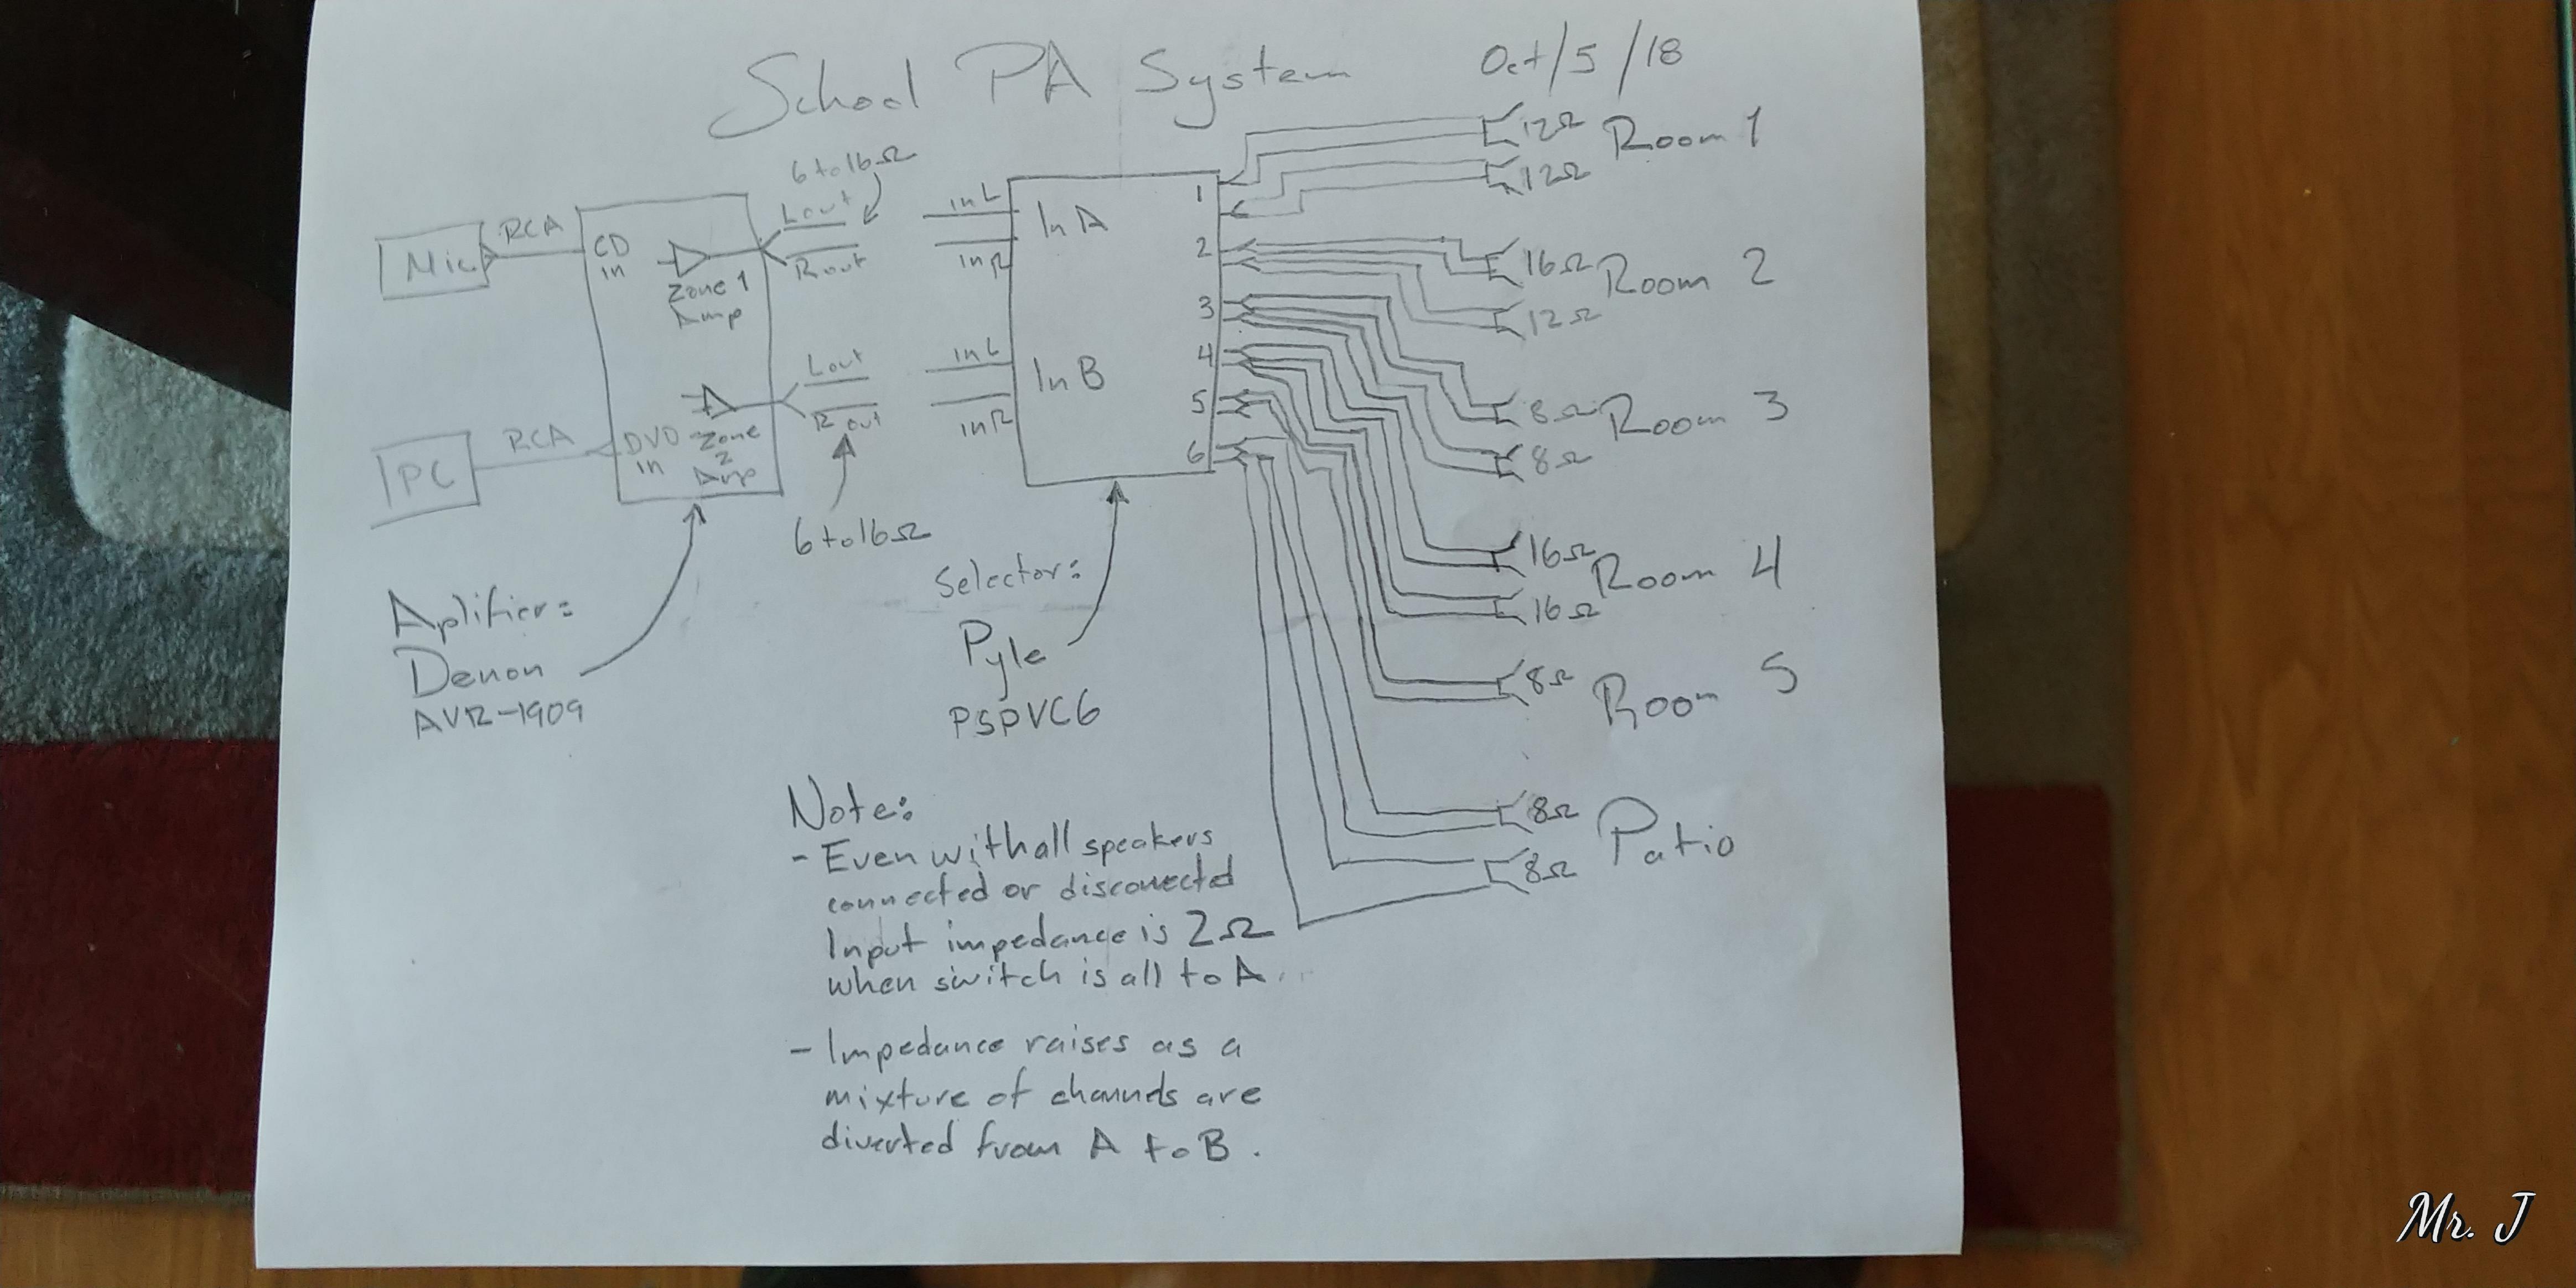 School PA System Oct/5/18
6 to 16Ω
Mic
RCA
CD
in
Zone 1
Amp
L out
R out
in L
in R
In A
PC
RCA
DVD
in
Zone
2
Amp
L out
R out
6 to 16Ω
in L
in R
In B
1
2
3
4
5
6
12Ω
12Ω
Room 1
16Ω
12Ω
Room 2
8Ω
8Ω
Room 3
16Ω
16Ω
Room 4
8Ω
Room 5
8Ω
8Ω
Patio
Aplifier:
Denon
AVR-1909
Selector:
Pyle
PSPVC6
Note:
- Even with all speakers
connected or disconected
Input impedance is 2Ω
when switch is all to A.
- Impedance raises as a
mixture of channels are
diverted from A to B.
Mr. J